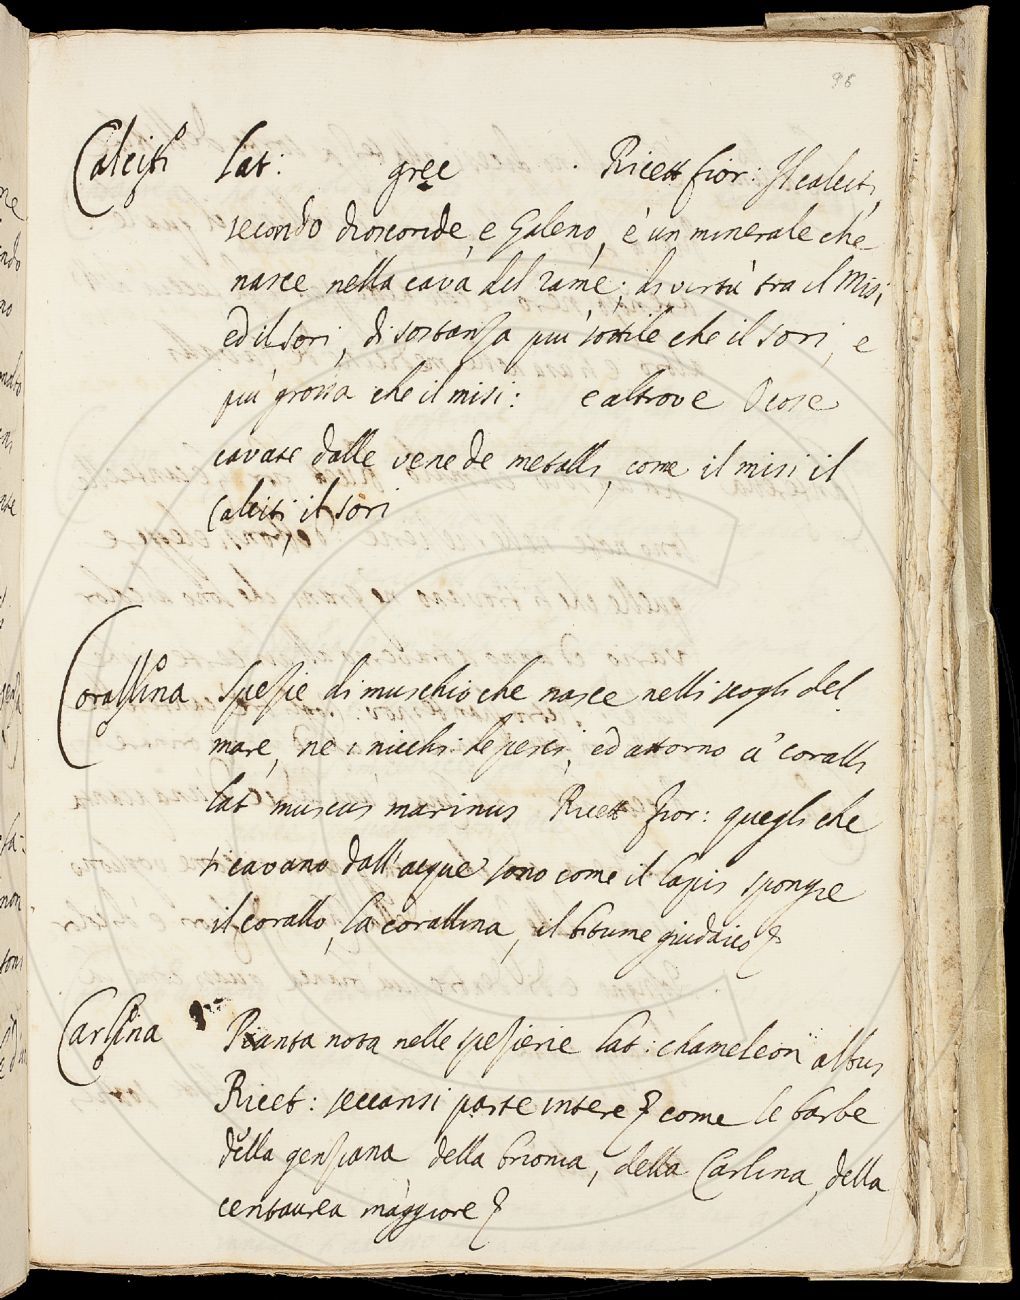 96
Calciti lat: grec Ricett fior: Il calciti
secondo dioscoride, e Galeno, è un minerale che
nasce nella cava del rame, di virtù tra il Misi
ed il sori, di sostanza più sottile che il sori, e
più grossa che il misi: e altrove O cose
cavate dalle vene de metalli, come il misi il
Calciti, il sori
Corallina Spezie di muschio che nasce nelli scogli del
mare, ne i nicchi de pesci, ed attorno a' coralli
lat muscus marinus Ricett fior: quegli che
si cavano dall'acque sono come il lapis spongie
il corallo, la corallina, il bitume giudaico
Carlina Pianta nota nelle spezierie lat: chameleon albus
Ricet: seccansi parte intere come le barbe
della genziana della brionia, della Carlina, della
centaurea maggiore